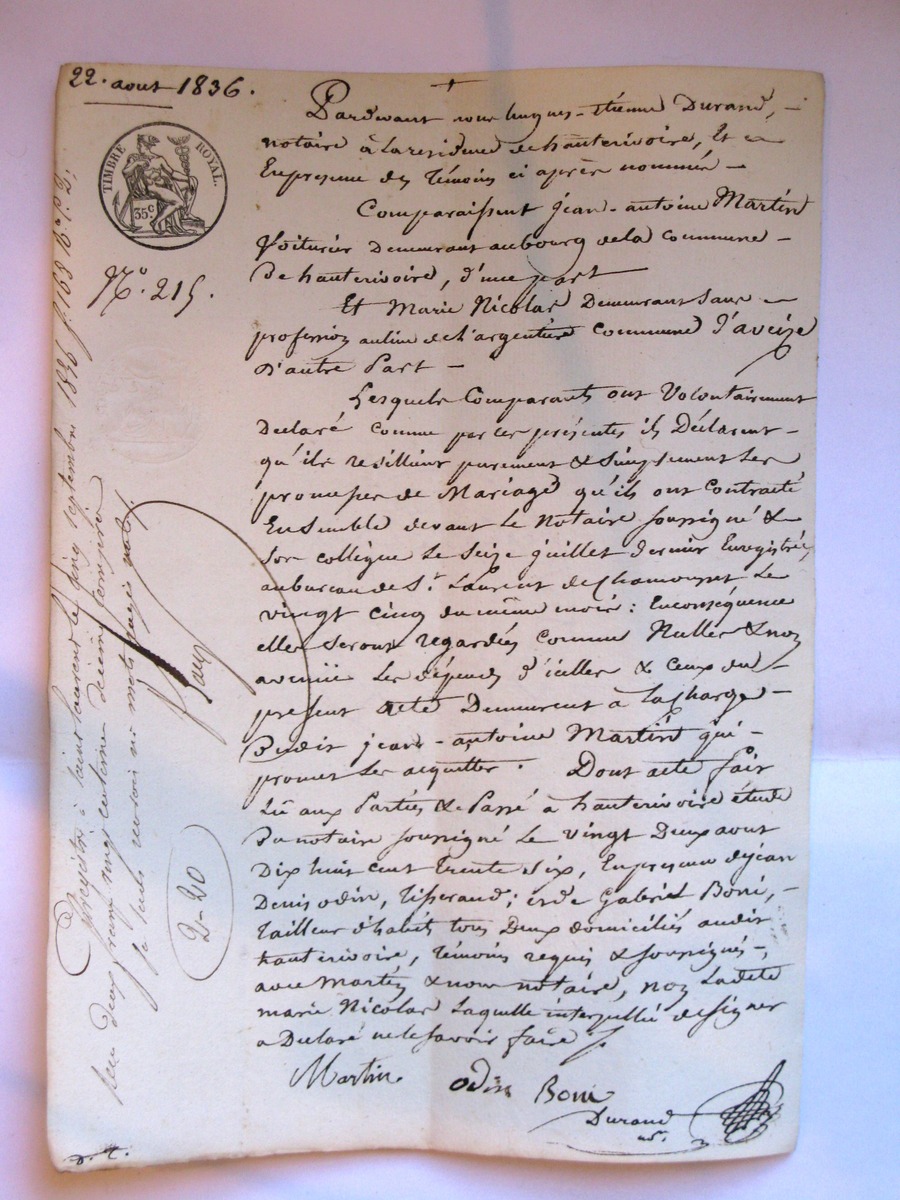 22. aout 1836.
TIMBRE ROYAL.
35c
N.o 215.
Pardevant nous hugues-étienne Durand,
notaire à la residence de hauterivoire, Et en
En presence des Témoins ci après nommés
Comparaissent jean-antoine Martin
Voiturier Demeurant au bourg de la Commune
De hauterivoire, d'une part
Et Marie Nicolas Demeurant sans
profession au lieu de L'argentière Commune d'aveize
D'autre Part
Lesquels Comparants ont Volontairement
Declaré Comme par ces présentes ils Déclarent
qu'ils resillient purement & simplement Les
promesses de Mariage qu'ils ont Contracté
Ensemble devant Le Notaire soussigné &
son collègue Le seize juillet dernier Enregistrées
au bureau de St. Laurent de Chamousset Le
vingt cinq du même mois : En conséquence
elles seront regardées comme Nulles & non
avenue Les dépends d'icelles & ceux du
présent acte Demeurent à La charge
Dudit jean-antoine Martin qui
promet Les acquitter. Dont acte fait
Lû aux Parties & Passé à hauterivoire étude
Du notaire soussigné Le Vingt Deux aout
Dix huit cent trente six, En presence de jean
Denis odin, Tisserand; et de Gabriel Boni,
tailleur d'habits tous Deux domiciliés audit
hauterivoire, Témoins requis & soussignés,
avec Martin & nous notaire, non Ladite
marie Nicolas Laquelle interpellée de signer
a Declaré ne le savoir faire ./.
Martin odin Boni
Durand
Enregistré à saint Laurent le cinq septembre 1836 f. 168
reçu deux francs vingt centimes decime compris
2-20